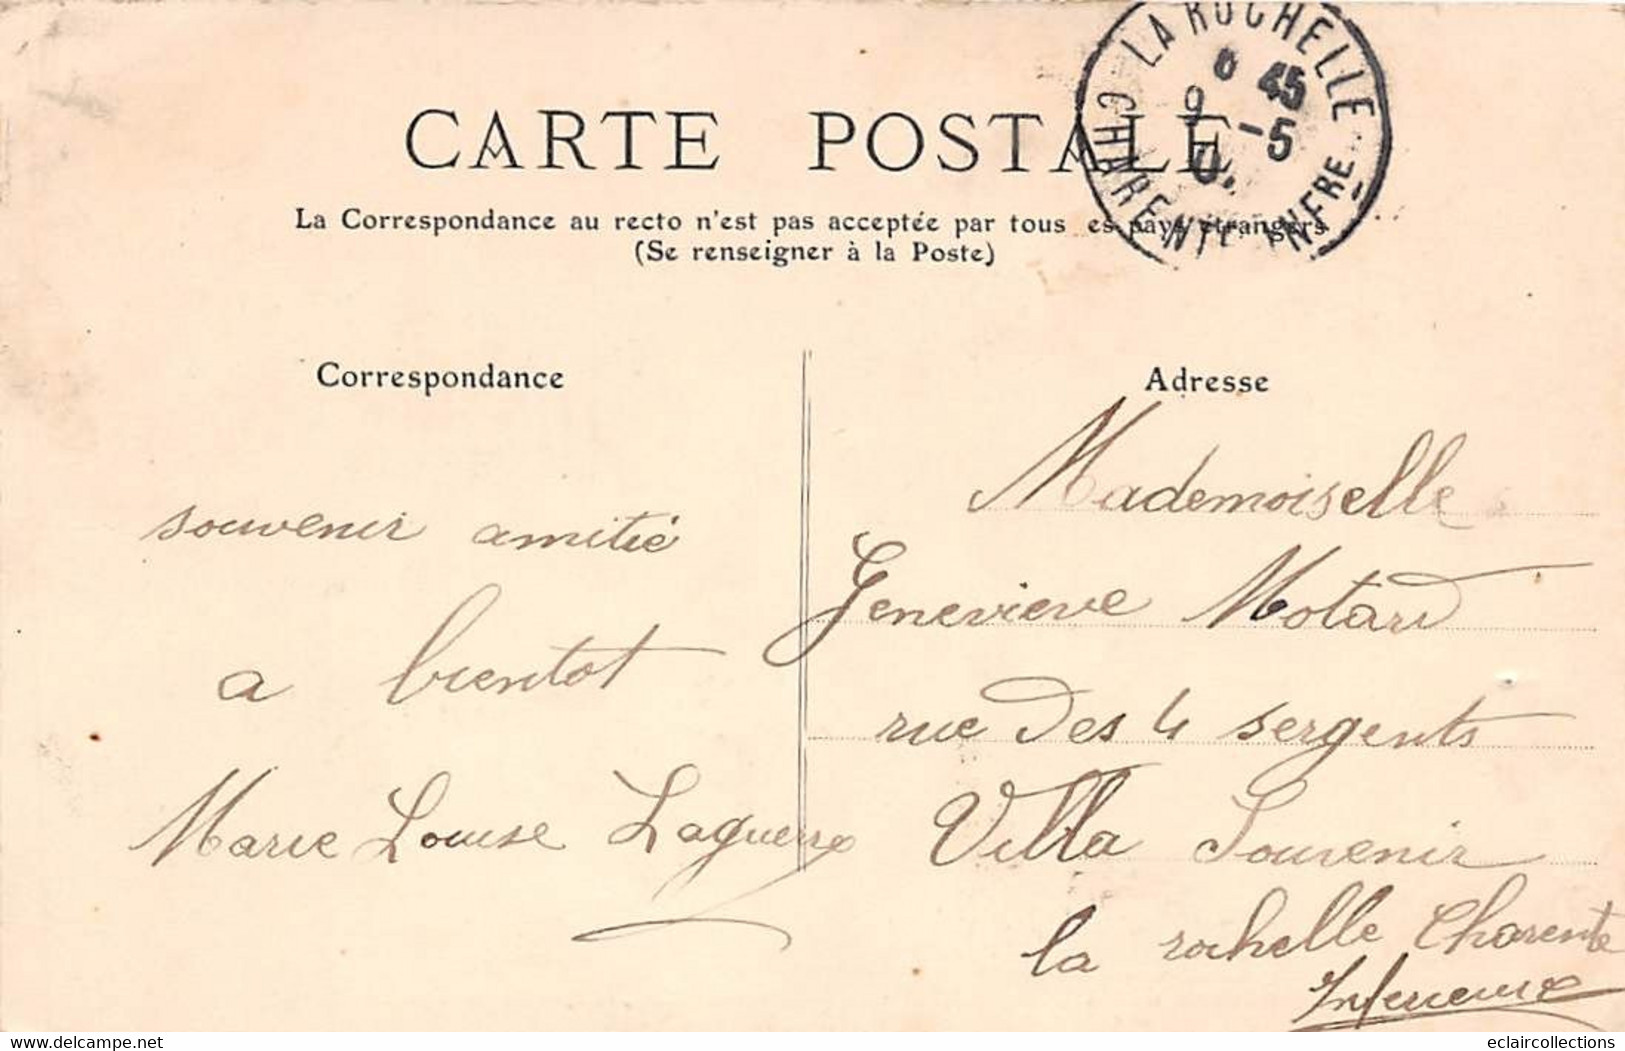 CARTE POSTALE
La Correspondance au recto n'est pas acceptée par tous es pays étrangers
(Se renseigner à la Poste)
LA ROCHELLE
45
-5
CHARENTE INFRE
Correspondance
souvenir amitié
a bientot
Marie Louise Laguerre
Adresse
Mademoiselle
Genevieve Motard
rue Des 4 sergents
Villa Souvenir
la rochelle Charente
Inferieure
eclaircollections